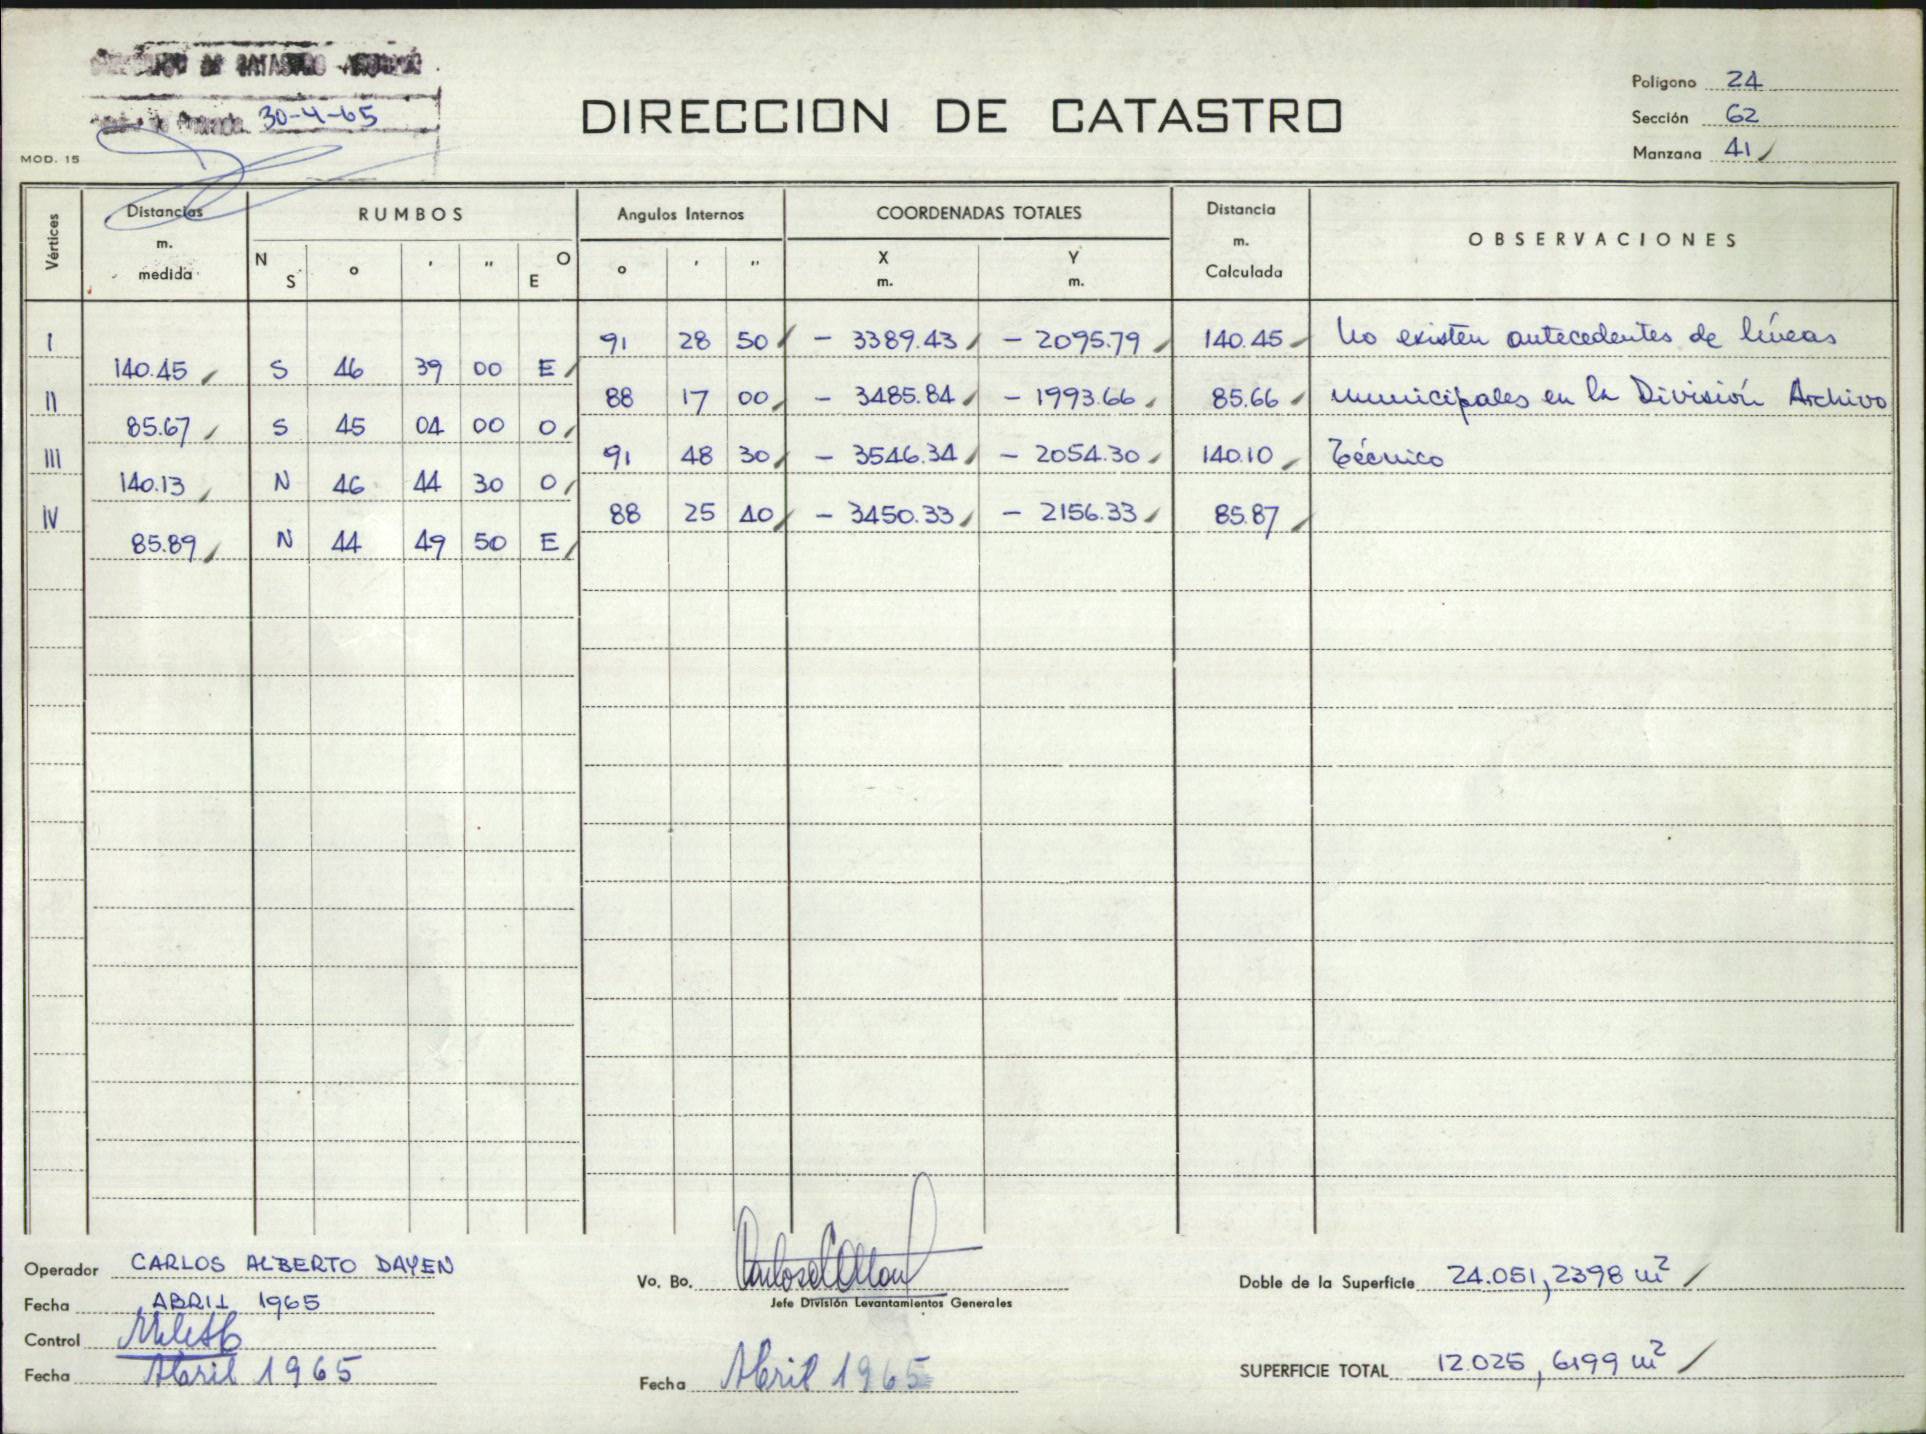 DE CATASTRO
30-4-65
MOD. 15
DIRECCION DE CATASTRO
Polígono 24
Sección 62
Manzana 41
Vértices
Distancias m. medida
RUMBOS
N S ° ' " O E
Angulos Internos
° ' "
COORDENADAS TOTALES
X m. Y m.
Distancia m. Calculada
OBSERVACIONES
I 91 28 50 - 3389.43 - 2095.79 140.45 No existen antecedentes de líneas
140.45 S 46 39 00 E
II 88 17 00 - 3485.84 - 1993.66 85.66 municipales en la División Archivo
85.67 S 45 04 00 O
III 91 48 30 - 3546.34 - 2054.30 140.10 Técnico
140.13 N 46 44 30 O
IV 88 25 40 - 3450.33 - 2156.33 85.87
85.89 N 44 49 50 E
Operador CARLOS ALBERTO DAYEN
Fecha ABRIL 1965
Control
Fecha Abril 1965
Vo. Bo.
Jefe División Levantamientos Generales
Fecha Abril 1965
Doble de la Superficie 24.051,2398 m²
SUPERFICIE TOTAL 12.025,6199 m²